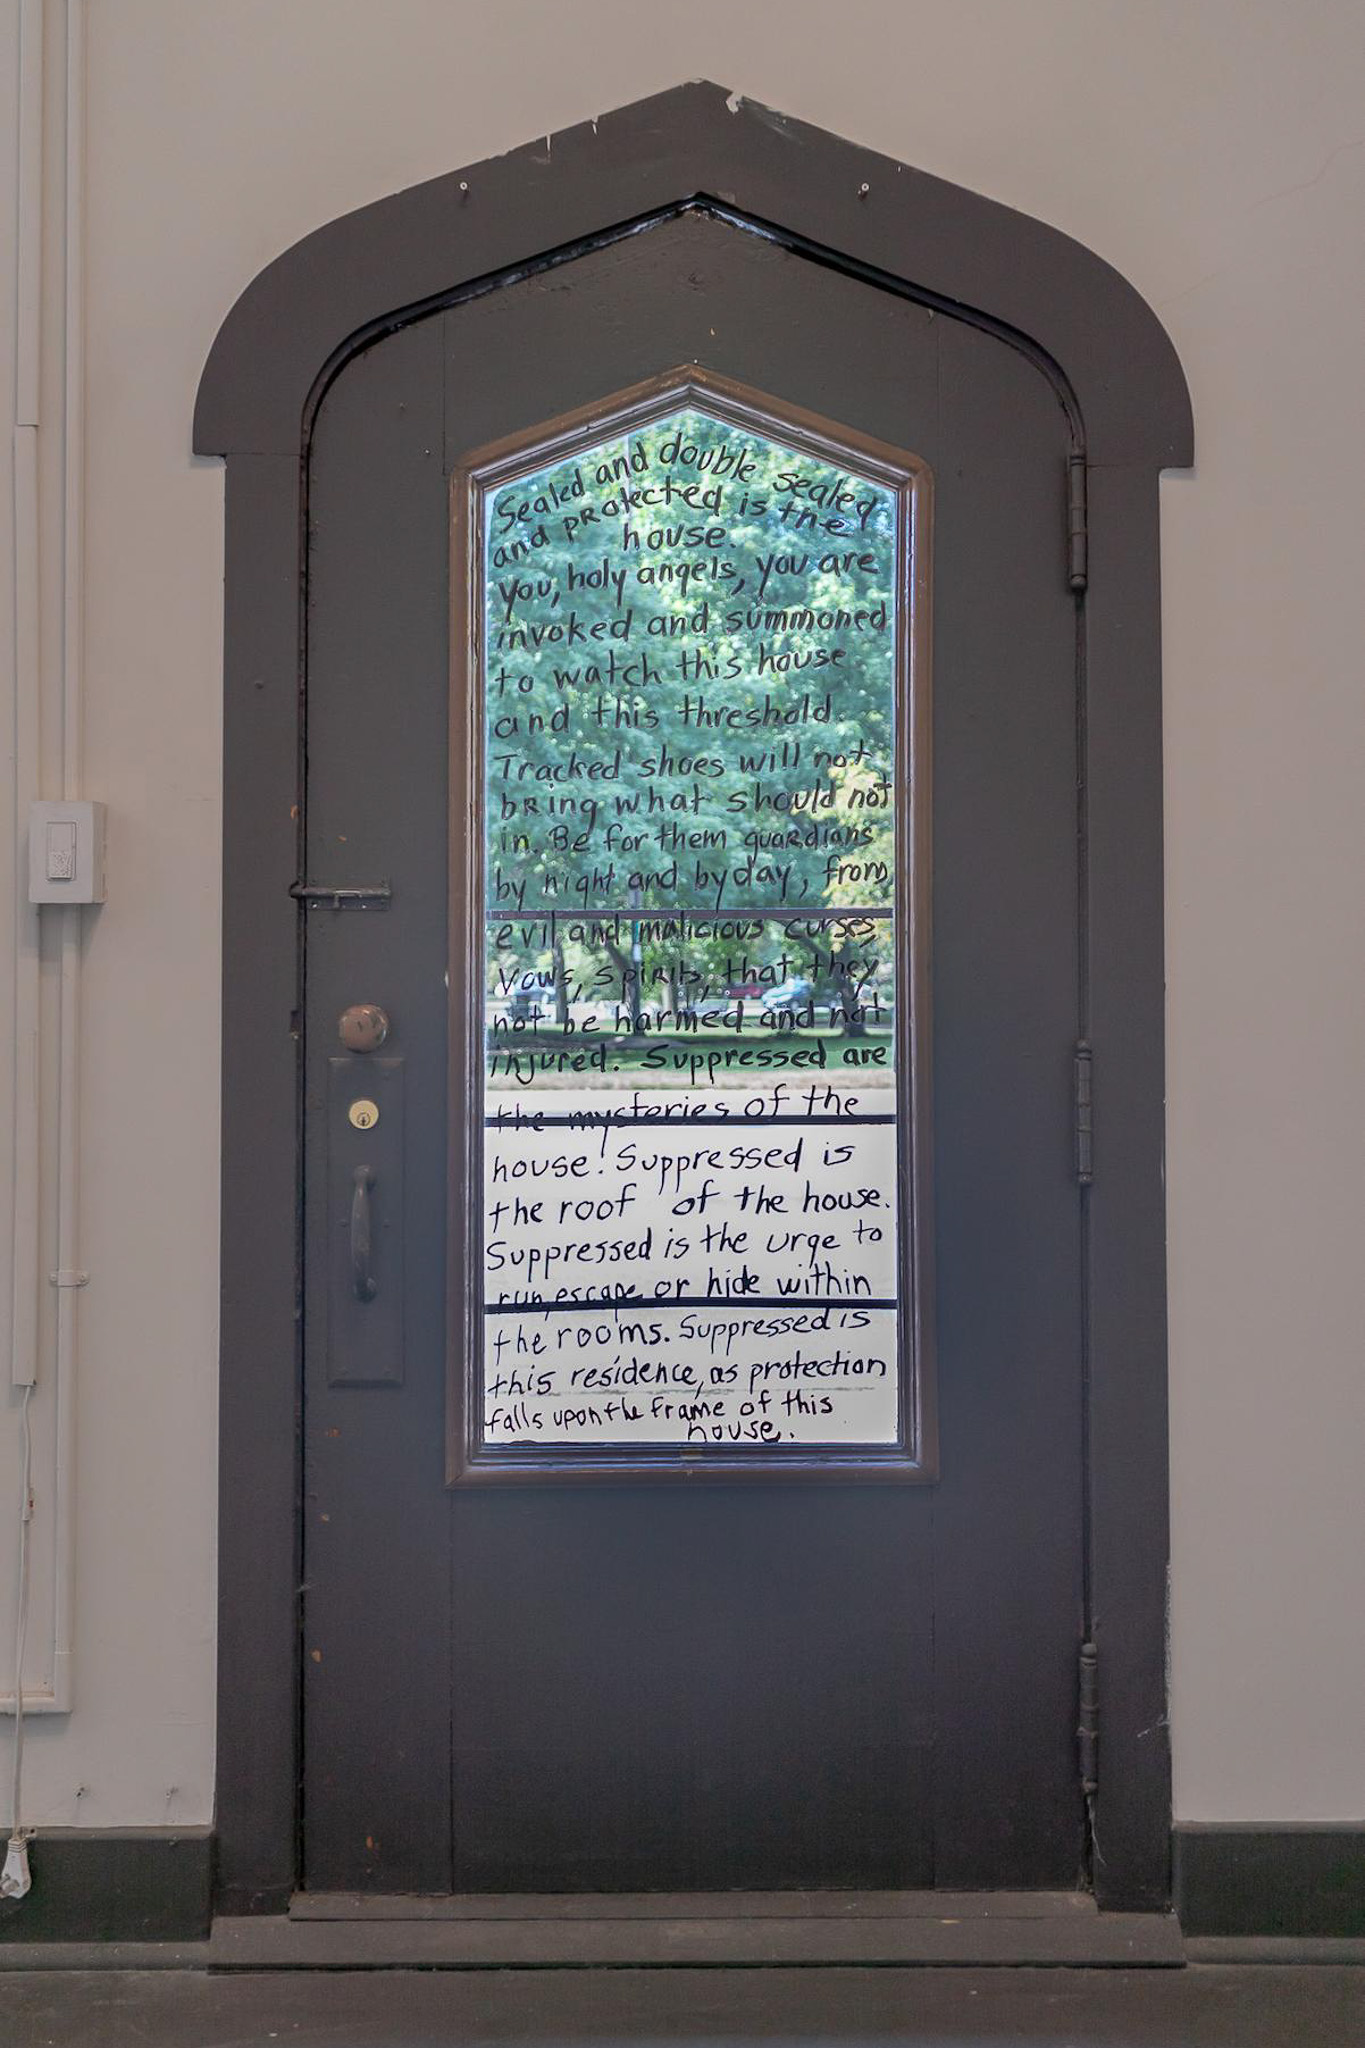 Sealed and double sealed
and protected is the
house.
You, holy angels, you are
invoked and summoned
to watch this house
and this threshold.
Tracked shoes will not
bring what should not
in. Be for them guardians
by night and by day, from
evil and malicious curses,
Vows, spirits, that they
not be harmed and not
injured. Suppressed are
the mysteries of the
house. Suppressed is
the roof of the house.
Suppressed is the urge to
run, escape or hide within
the rooms. Suppressed is
this residence, as protection
falls upon the frame of this
house.